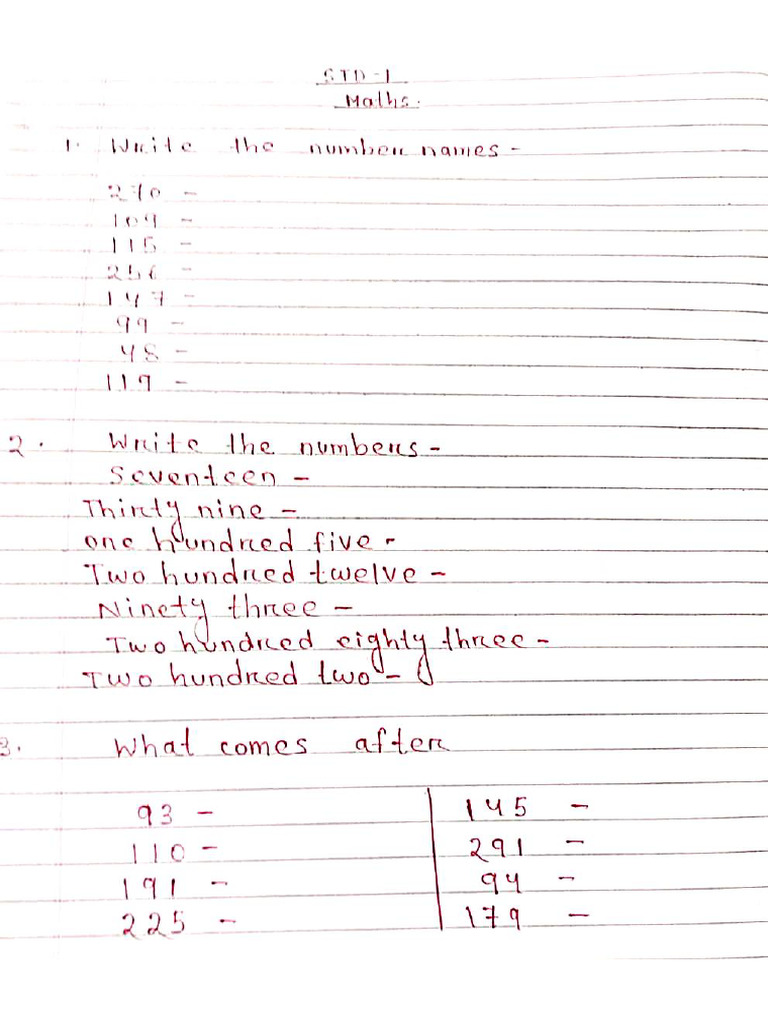 STD-1
Maths.
1. Write the number names -
270 -
109 -
115 -
256 -
147 -
99 -
48 -
119 -
2. Write the numbers -
Seventeen -
Thirty nine -
one hundred five -
Two hundred twelve -
Ninety three -
Two hundred eighty three -
Two hundred two -
3. What comes after
93 - 145 -
110 - 291 -
191 - 94 -
225 - 179 -